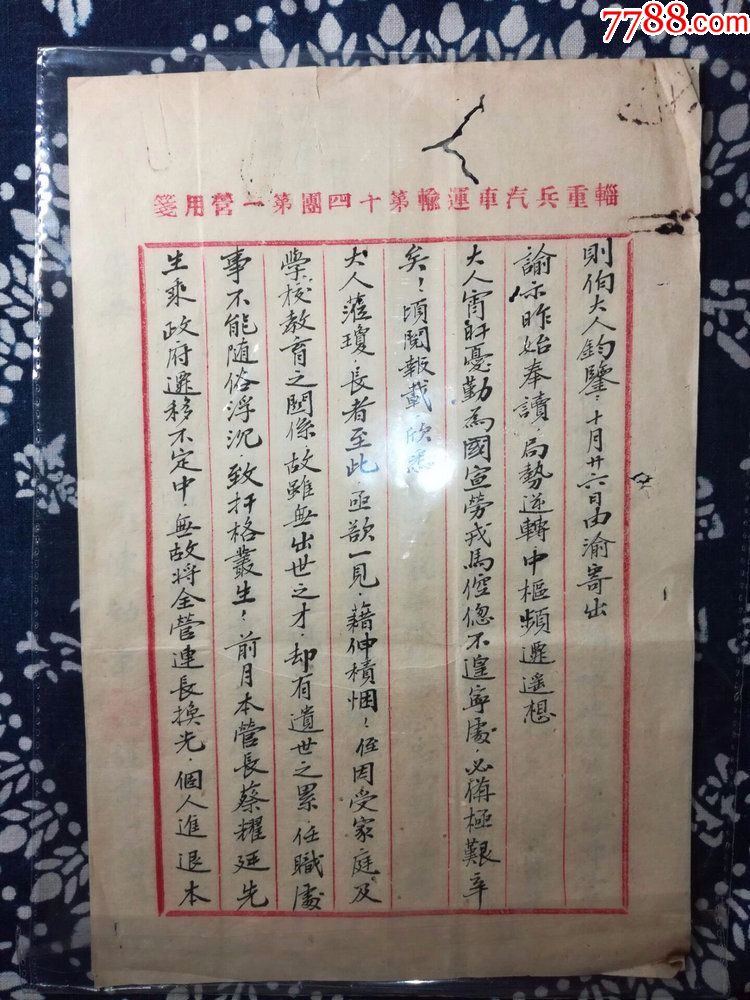 7788.com
輜重兵汽車運輸第十四團第一營用箋
則伯大人鈞鑒：十月廿六日由渝寄出
諭示昨始奉讀，局勢逆轉中樞頻遷遥想
大人宵旰憂勤為國宣勞戎馬倥傯不遑寧處，必備極艱辛
矣！頃閱報載欣悉
大人蒞瓊，長者至此，亟欲一見，藉伸積悃！侄因受家庭及
學校教育之關係，故雖無出世之才，却有遺世之累，任職處
事不能随俗浮沉，致扞格叢生！前月本營長蔡耀廷先
生乘政府遷移不定中，無故將全營連長換光，個人進退本